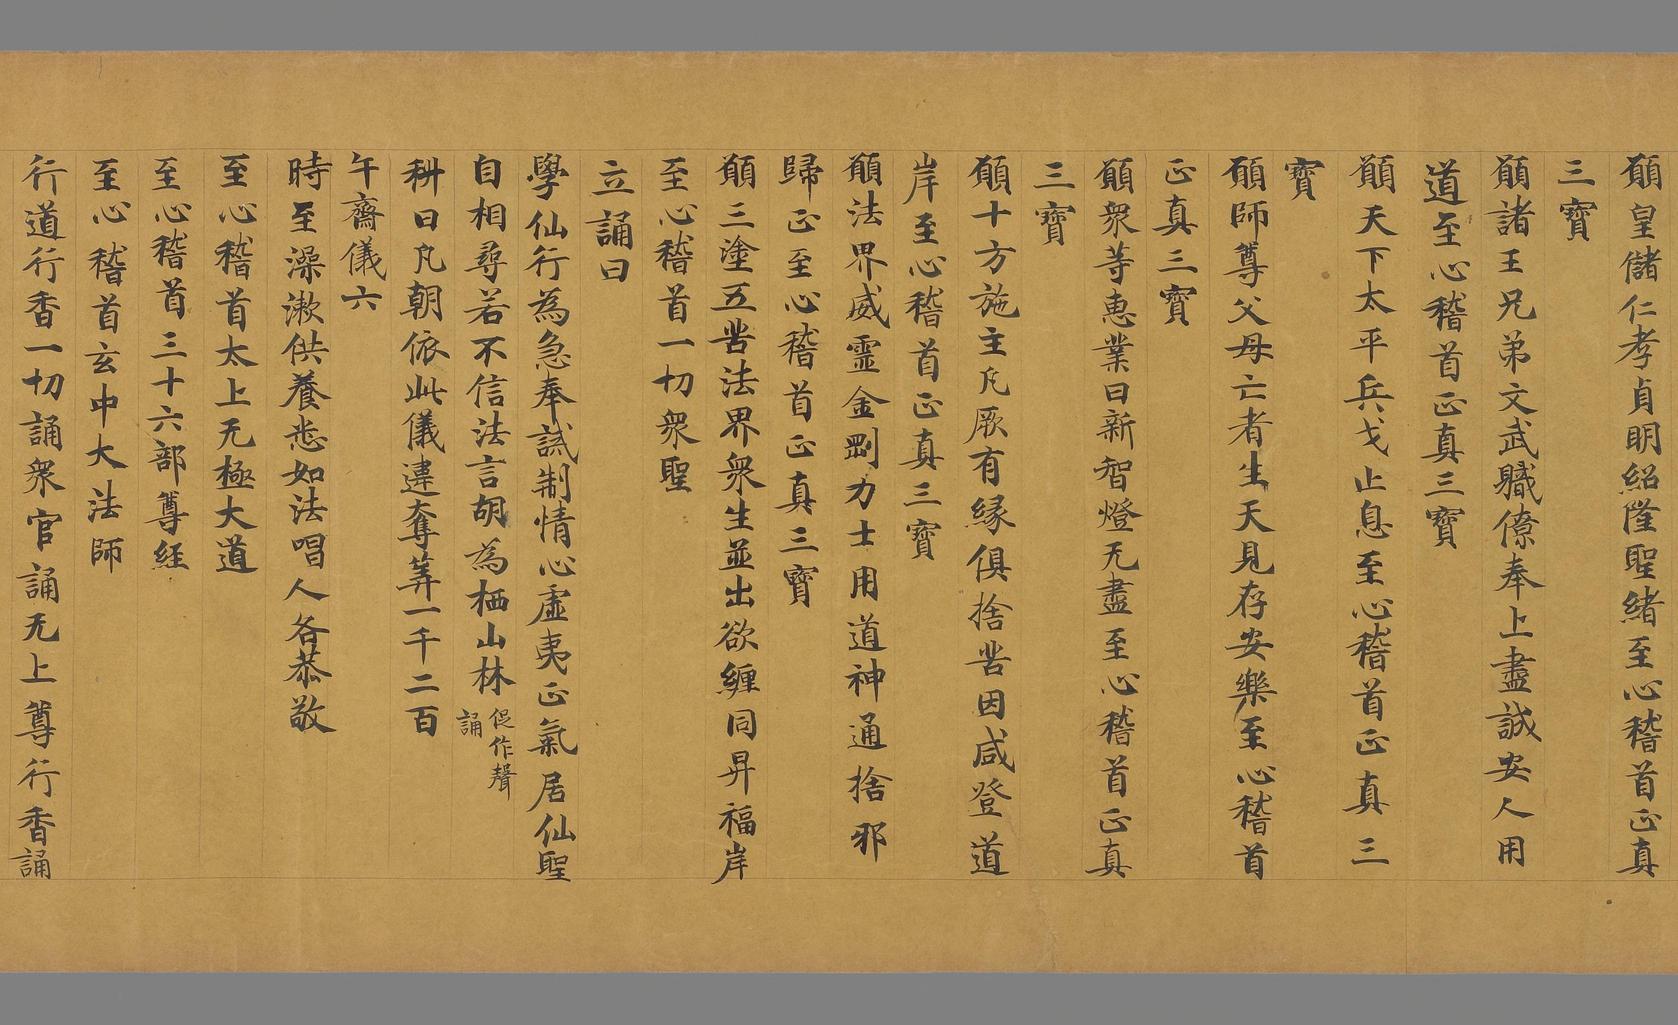 願皇儲仁孝貞明紹隆聖緒至心稽首正真
三寶
願諸王兄弟文武職僚奉上盡誠安人用
道至心稽首正真三寶
願天下太平兵戈止息至心稽首正真三
寶
願師尊父母亡者生天見存安樂至心稽首
正真三寶
願眾等惠業日新智燈无盡至心稽首正真
三寶
願十方施主凡厥有緣俱捨苦因咸登道
岸至心稽首正真三寶
願法界威靈金剛力士用道神通捨邪
歸正至心稽首正真三寶
願三塗五苦法界眾生並出欲纏同昇福岸
至心稽首一切眾聖
立誦曰
學仙行為急奉試制情心虛夷正氣居仙聖
自相尋若不信法言胡為栖山林促作聲誦
科曰凡朝依此儀違奪筭一千二百
午齋儀六
時至澡漱供養悉如法唱人各恭敬
至心稽首太上无極大道
至心稽首三十六部尊經
至心稽首玄中大法師
行道行香一切誦眾官誦无上尊行香誦